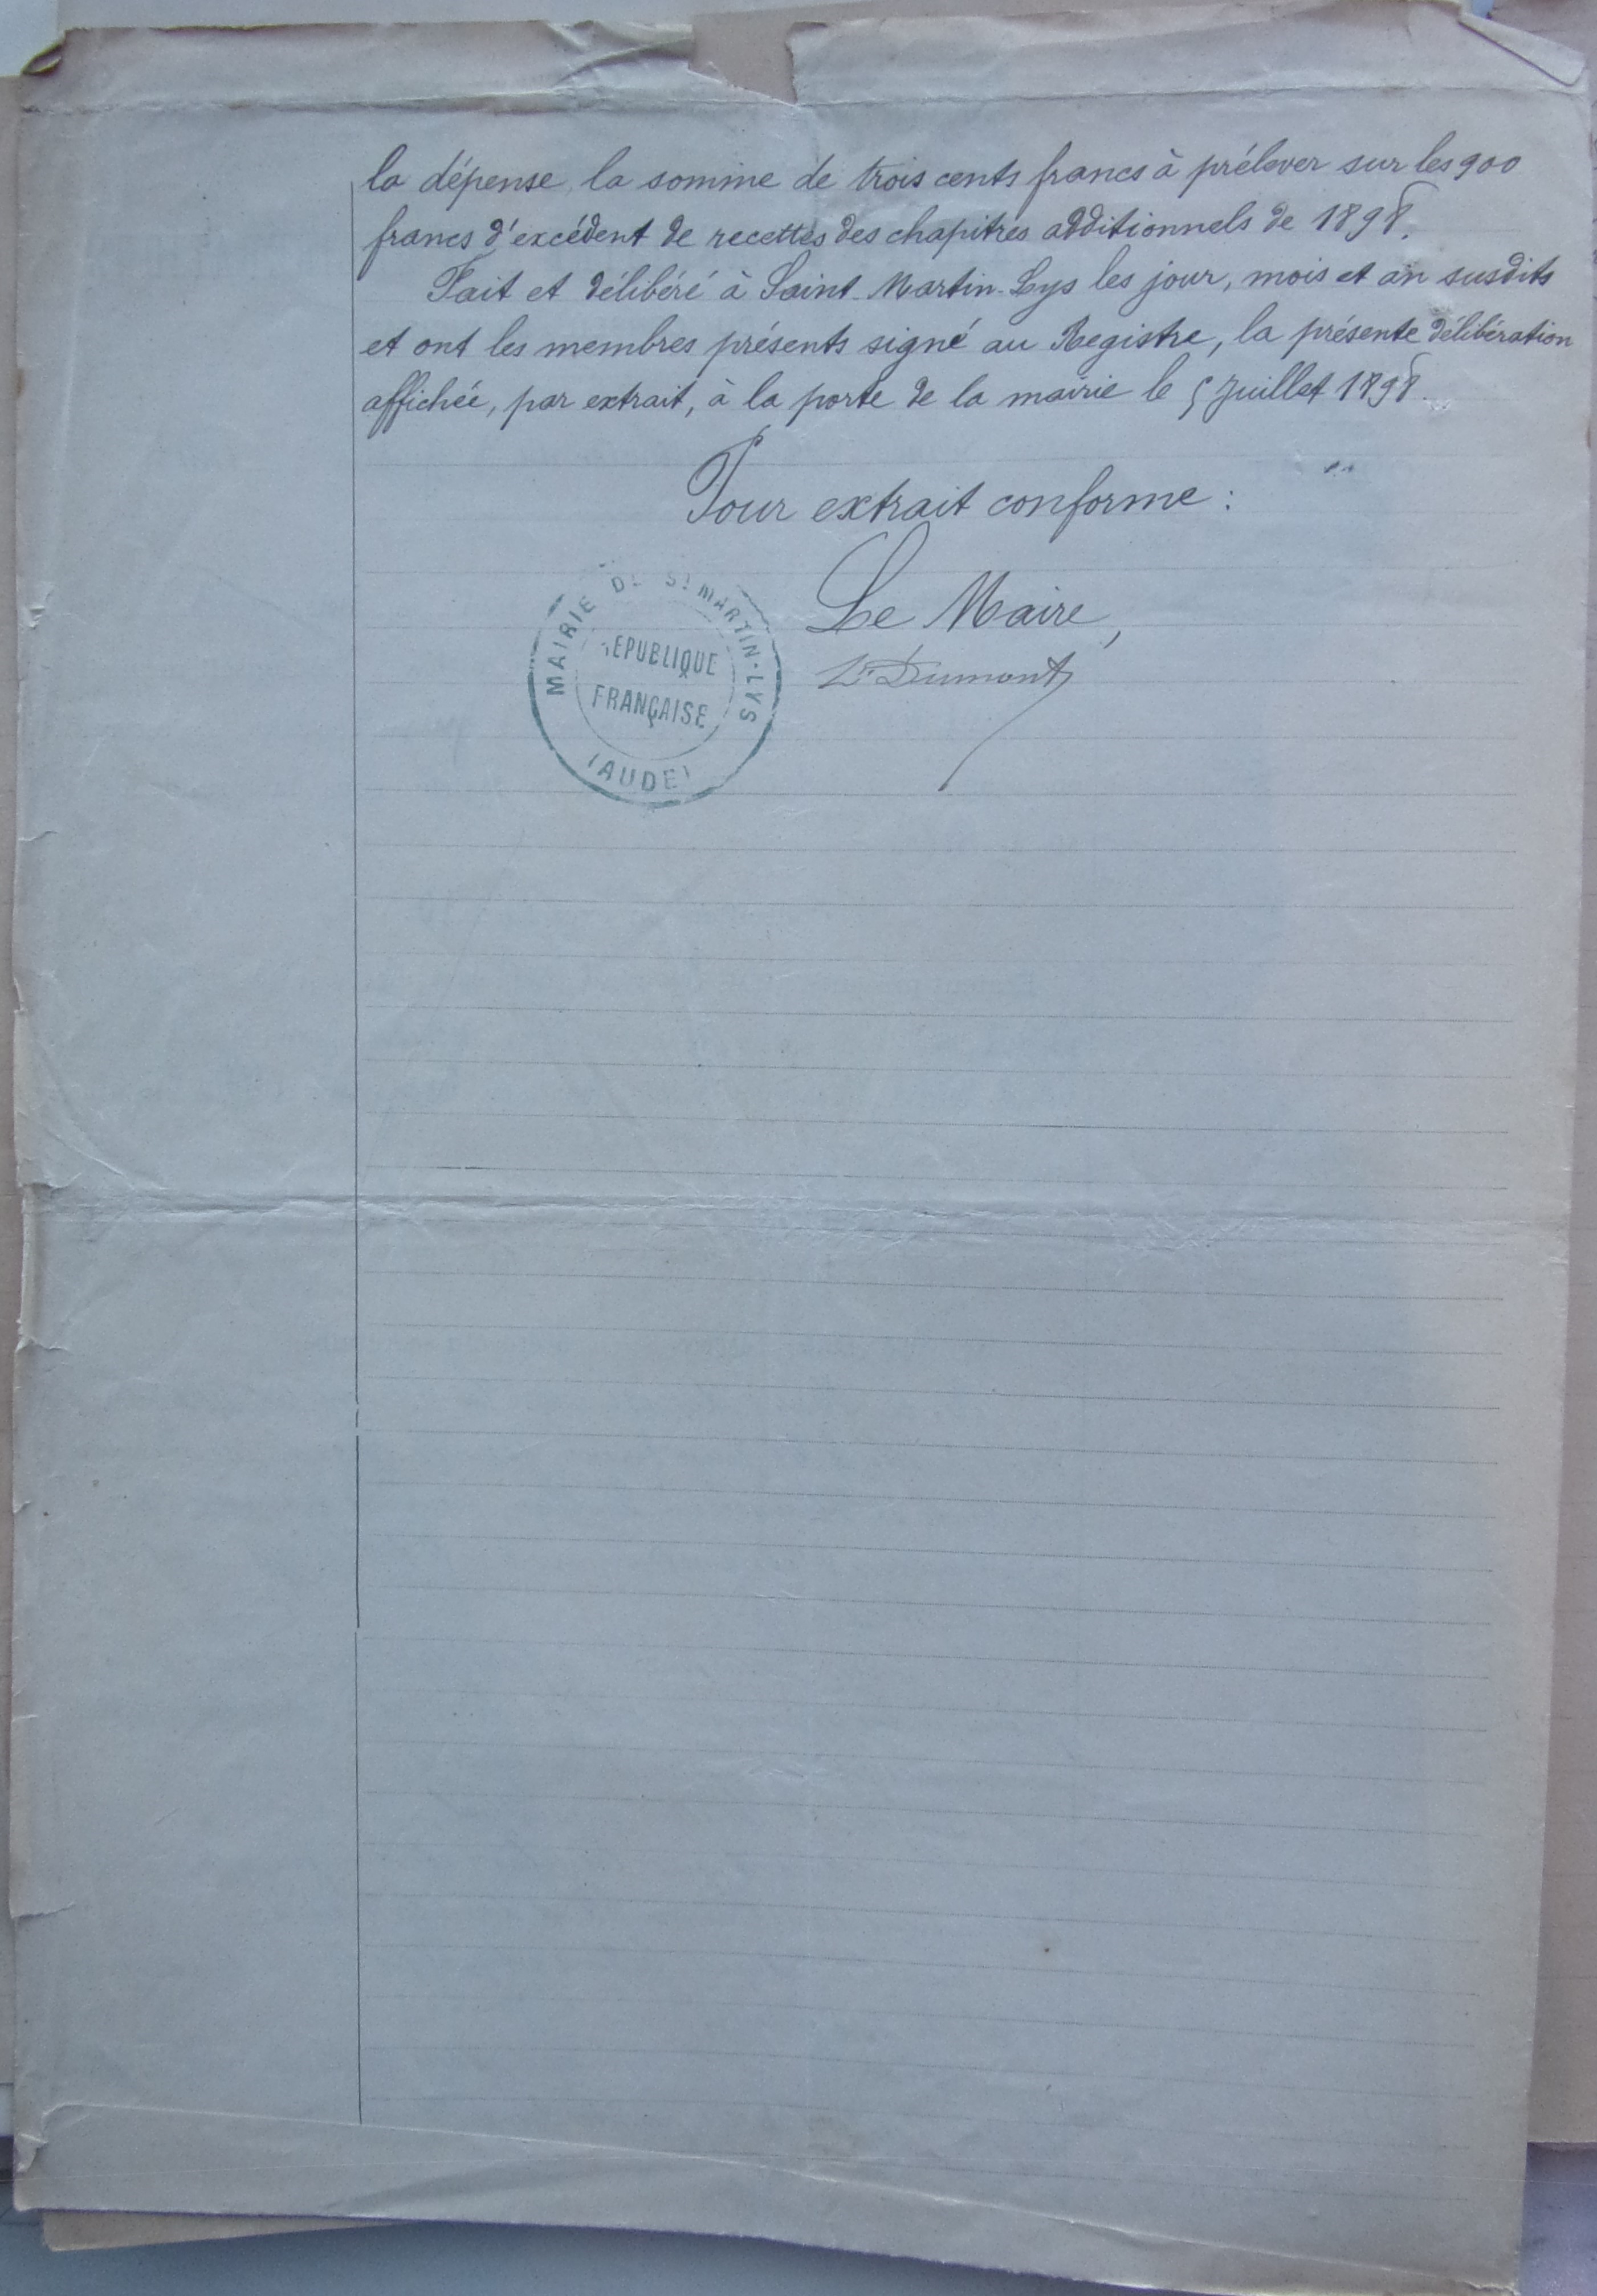 la dépense, la somme de trois cents francs à prélever sur les 900
francs d'excédent de recettes des chapitres additionnels de 1898.
Fait et délibéré à Saint-Martin-Lys les jour, mois et an susdits
et ont les membres présents signé au Registre, la présente délibération
affichée, par extrait, à la porte de la mairie le 5 Juillet 1898.
Pour extrait conforme :
Le Maire,
Dumont
MAIRIE DE St MARTIN-LYS
REPUBLIQUE
FRANÇAISE
(AUDE)